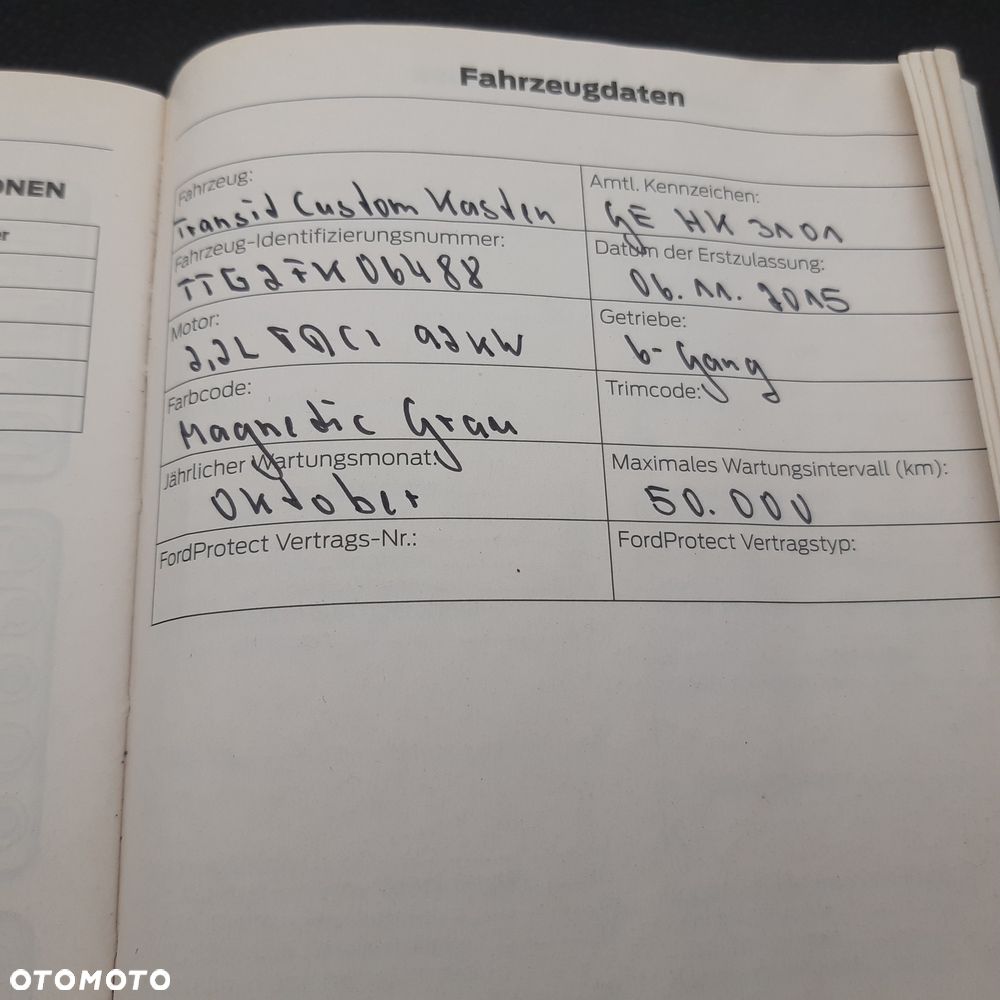 ONEN
er
Fahrzeugdaten
Fahrzeug:
Transit Custom Kasten
Amtl. Kennzeichen:
GE HK 3101
Fahrzeug-Identifizierungsnummer:
TTG27FK06488
Datum der Erstzulassung:
06.11.2015
Motor:
2,2L TDCi 92KW
Getriebe:
6-Gang
Farbcode:
Magnetic Grau
Trimcode:
Jährlicher Wartungsmonat:
Oktober
Maximales Wartungsintervall (km):
50.000
FordProtect Vertrags-Nr.:
FordProtect Vertragstyp:
OTOMOTO